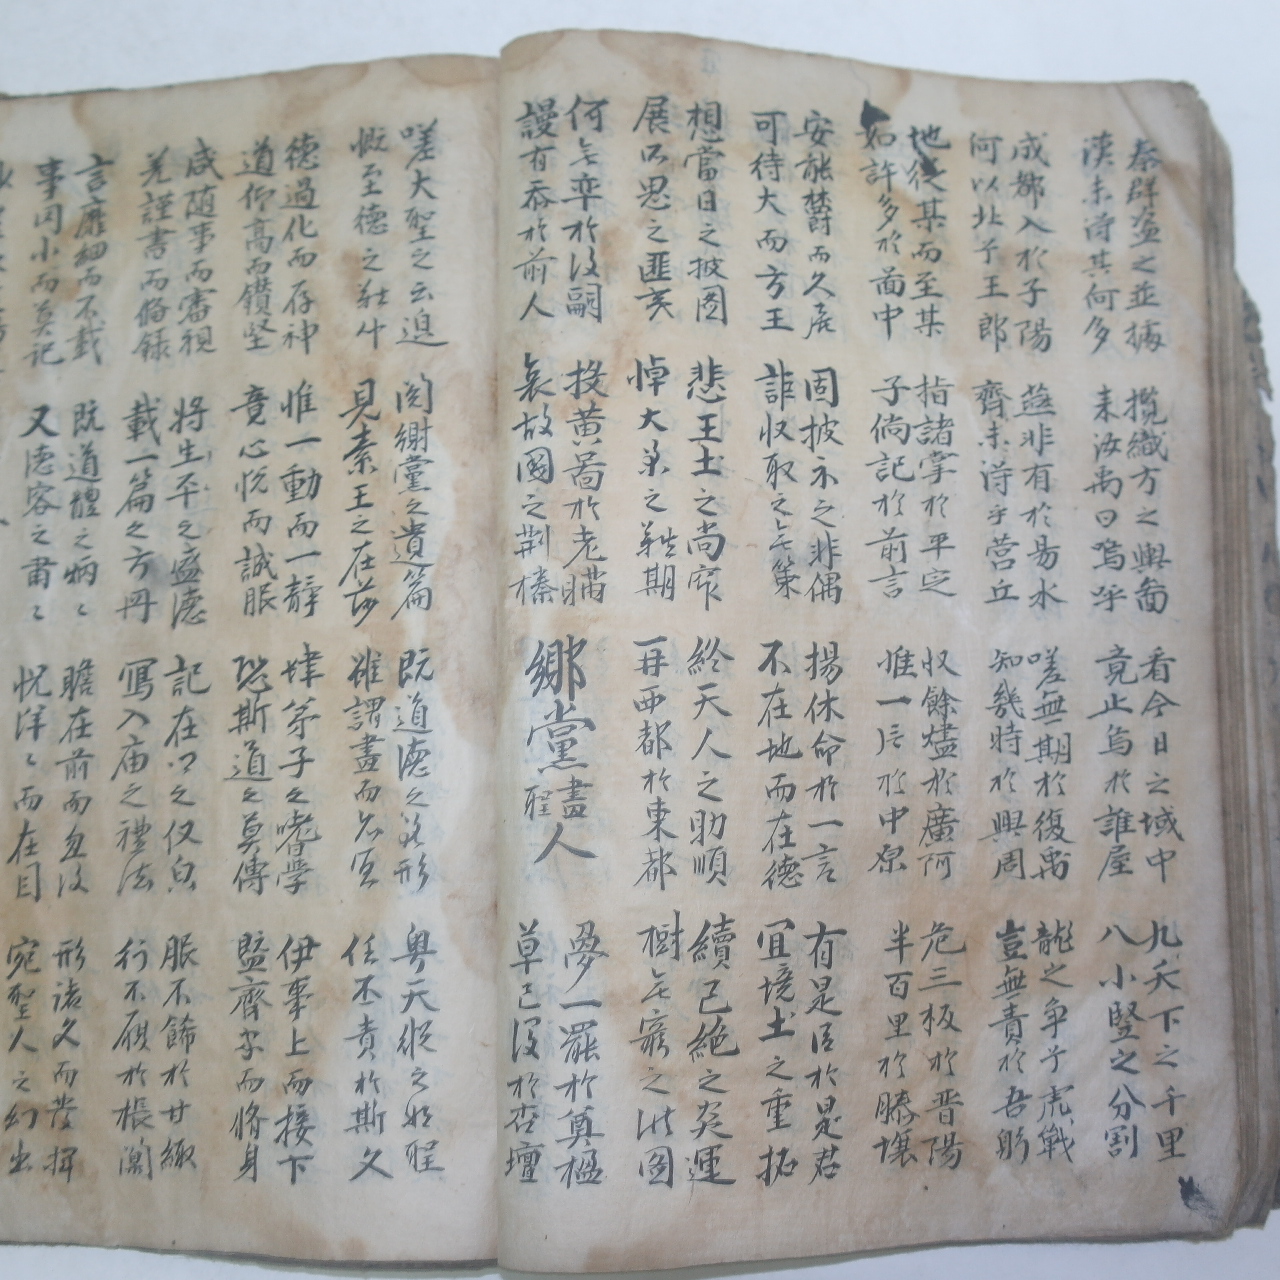 秦群盜之並據
漢未得其何多
攬織方之輿啚
來汝禹曰嗚呼
看今日之域中
竟止烏於誰屋
九天下之千里
八小竪之分割
成都入於子陽
何以北乎王郎
燕非有於易水
齊未得乎營丘
嗟無期於復禹
知幾時於興周
龍之爭乎虎戰
豈無責於吾躬
地從某而至某
如許多於啚中
指諸掌於平定
子倘記於前言
收餘燼於廣阿
惟一后於中原
危三板於晋陽
半百里於滕壤
安能欝而久居
可待大而方王
固披示之非偶
詎收取之無策
揚休命於一言
不在地而在德
有是臣於是君
宜境土之重拓
想當日之披圖
展所思之匪
悲王土之尚窄
悼大業之難期
終天人之助順
再西都於東都
續已絶之炎運
樹無窮之洪図
何無弈於後嗣
謾有吞於前人
投黃啚於老瞞
哀故國之荆榛
鄉黨畫聖人
夢一罷於奠楹
草已沒於杏壇
嗟大聖之云邈
慨至德之難
閱鄉黨之遺篇
見素王之在茲
既道德之形
雖謂畫而
粤天縱之將聖
任不責於斯文
德過化而存神
道仰高而鑽堅
惟一動而一靜
竟心悅而誠服
諸弟子之嗜學
恐斯道之莫傳
伊事上而接下
曁齊家而脩身
咸随事而審視
羌謹書而俻録
將生平之盛德
載一篇之方冊
記在之仪
寫入庙之禮法
服不餙於甘緅
行不履於棖闑
言靡細而不載
事罔小而莫記
既道體之
又德容之
瞻在前而忽後
恍洋〻而在目
形諸文而發揮
宛聖人之幻出